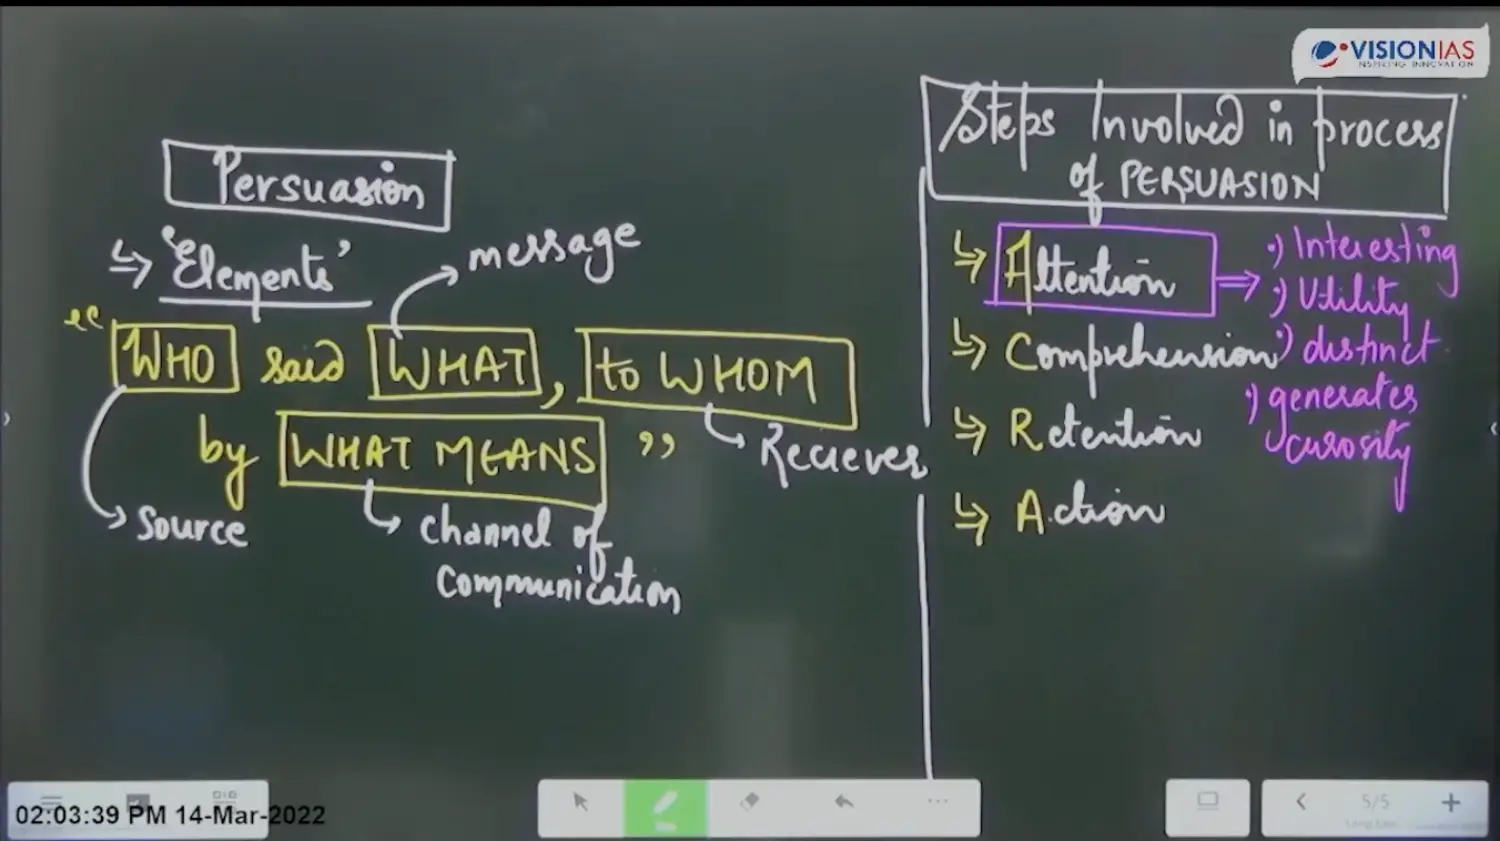 VISIONIAS
INSPIRING INNOVATION
Persuasion
↳ 'Elements'
message
"WHO said WHAT, to WHOM
by WHAT MEANS"
Reciever
source
channel of
communication
Steps Involved in process
of PERSUASION
↳ Attention ⇒ •) Interesting
•) Utility
↳ Comprehension •) distinct
↳ Retention •) generates
curosity
↳ Action
02:03:39 PM 14-Mar-2022
5/5